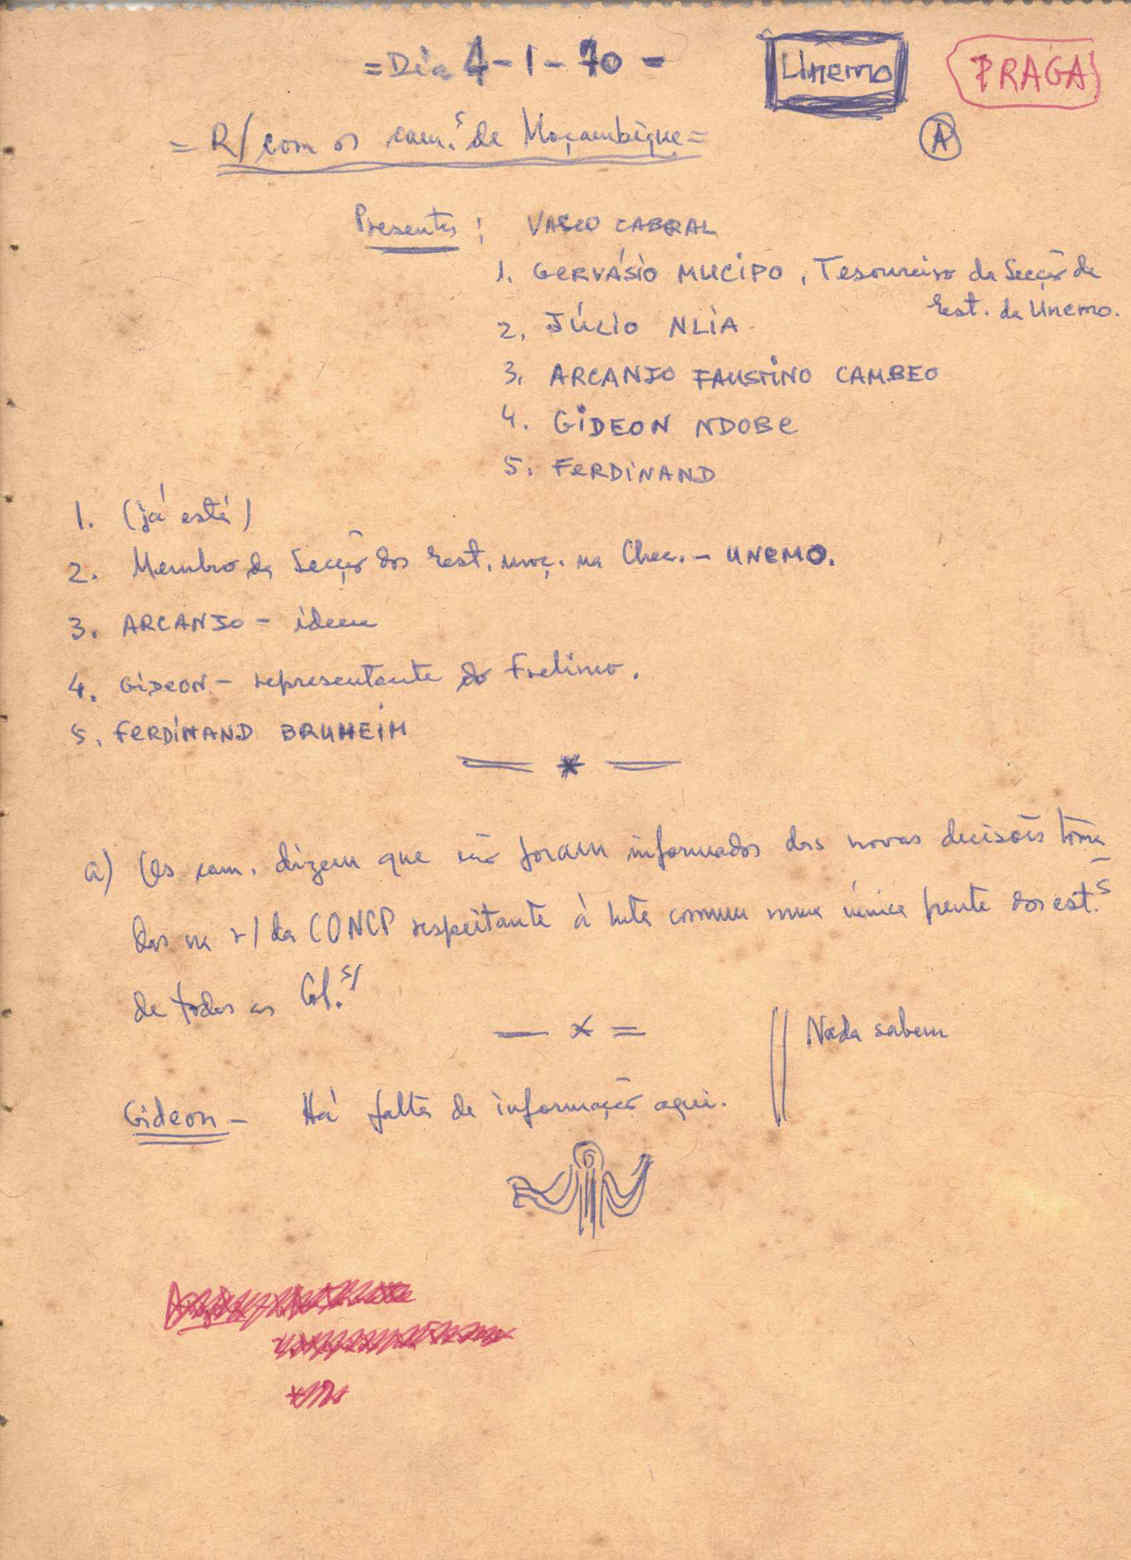 = Dia 4-1-70 -
Unemo
PRAGA
A
= R/ com os cam.s de Moçambique =
Presentes : VASCO CABRAL
1. GERVÁSIO MUCIPO, Tesoureiro da Secção de
Est. da Unemo.
2. JÚLIO NLIA
3. ARCANJO FAUSTINO CAMBEO
4. GIDEON NDOBE
5. FERDINAND
1. (já está)
2. Membro da Secção dos Est. moç. na Chec. - UNEMO.
3. ARCANJO - idem
4. GIDEON - representante da Frelimo.
5. FERDINAND BRUHEIM
a) Os cam. dizem que não foram informados das novas decisões toma-
das na r/ da CONCP respeitante à luta comum numa única frente dos est.s
de todas as Col.s/
Nada sabem
Gideon - Há falta de informação aqui.